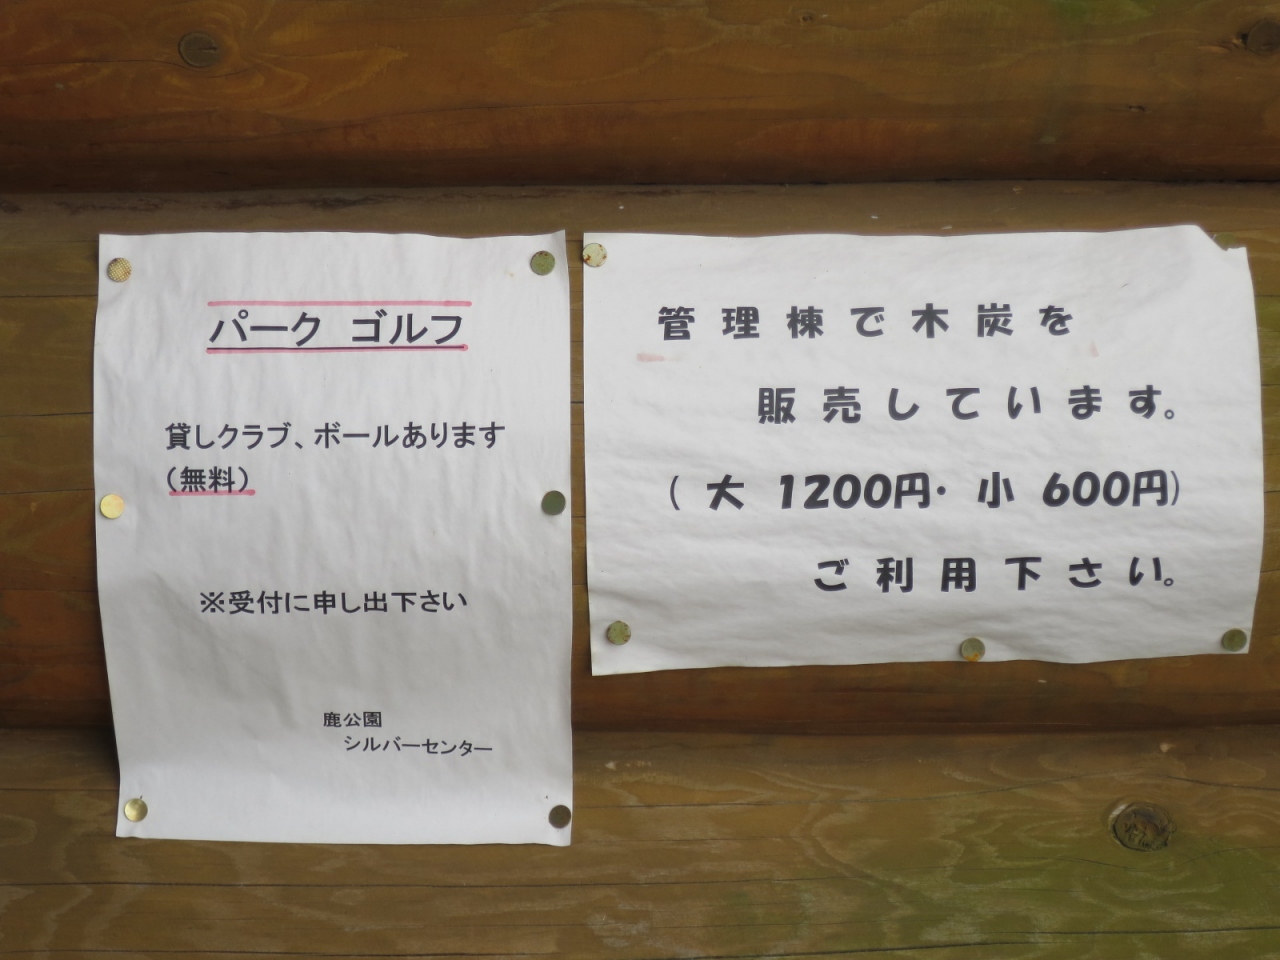 パーク ゴルフ
貸しクラブ、ボールあります
(無料)
※受付に申し出下さい
鹿公園
シルバーセンター
管理棟で木炭を
販売しています。
( 大 1200円・ 小 600円)
ご利用下さい。